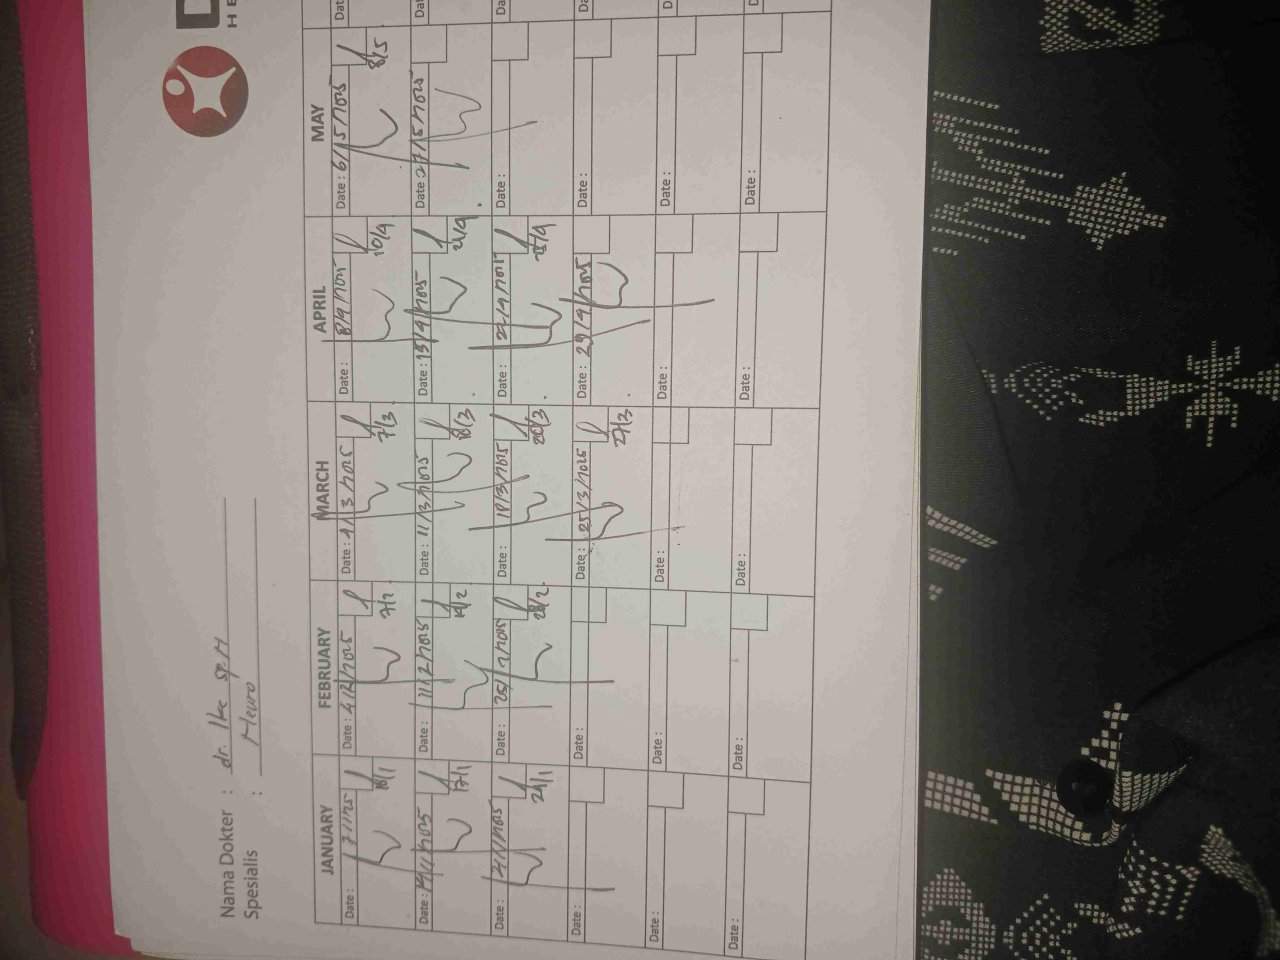 Nama Dokter : dr. Ike
Spesialis :
JANUARY FEBRUARY MARCH APRIL MAY
Date : Date : 4/2/2025 Date : 4/3/2025 Date : 8/4/2025 Date : 6/5/2025
7/2 7/3 10/4 8/5
Date : 14/1/2025 Date : 11/2/2025 Date : 11/3/2025 Date : 15/4/2025 Date : 27/5/2025
17/1 14/2
Date : 21/1/2025 Date : 25/2/2025 Date : 18/3/2025 Date : 22/4/2025 Date :
24/1 28/2 20/3
Date : Date : Date : 25/3/2025 Date : 29/4/2025 Date :
27/3
Date : Date : Date : Date : Date :
Date : Date : Date : Date : Date :